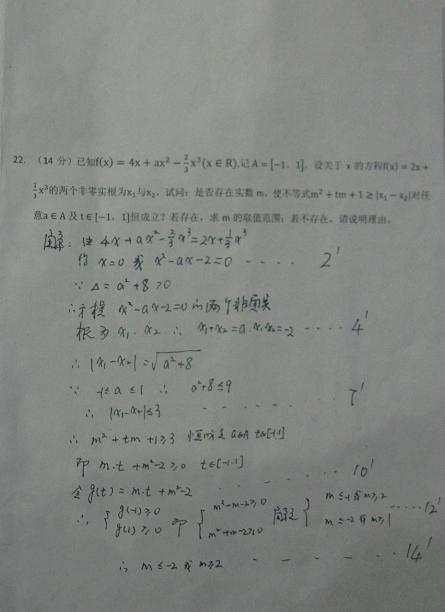 22. （14 分）已知f(x) = 4x + ax² − 2/3x³(x ∈ R),记 A = [−1，1]．设关于 x 的方程f(x) = 2x +
1/3x³的两个非零实根为x₁与x₂．试问：是否存在实数 m，使不等式m² + tm + 1 ≥ |x₁ − x₂|对任
意a ∈ A 及 t ∈ [−1，1]恒成立？若存在，求 m 的取值范围；若不存在，请说明理由．
解：由 4x+ax²-2/3x³=2x+1/3x³
得 x=0 或 x²-ax-2=0 ····· 2'
∵ Δ=a²+8>0
∴方程 x²-ax-2=0 的两个非零实
根为 x₁, x₂ ∴ x₁+x₂=a, x₁x₂=-2 ····· 4'
∴ |x₁-x₂|=√a²+8
∵ -1≤a≤1 ∴ a²+8≤9
∴ |x₁-x₂|≤3 ····· 7'
∴ m²+tm+1≥3 a∈A t∈[-1,1]
即 m·t+m²-2≥0 t∈[-1,1]
令 g(t)=m·t+m²-2 ····· 10'
∴ { g(-1)≥0 g(1)≥0 即 { m²-m-2≥0 m²+m-2≥0 解之 { m≤-1或m≥2 m≤-2或m≥1 ····· 12'
∴ m≤-2 或 m≥2 ····· 14'